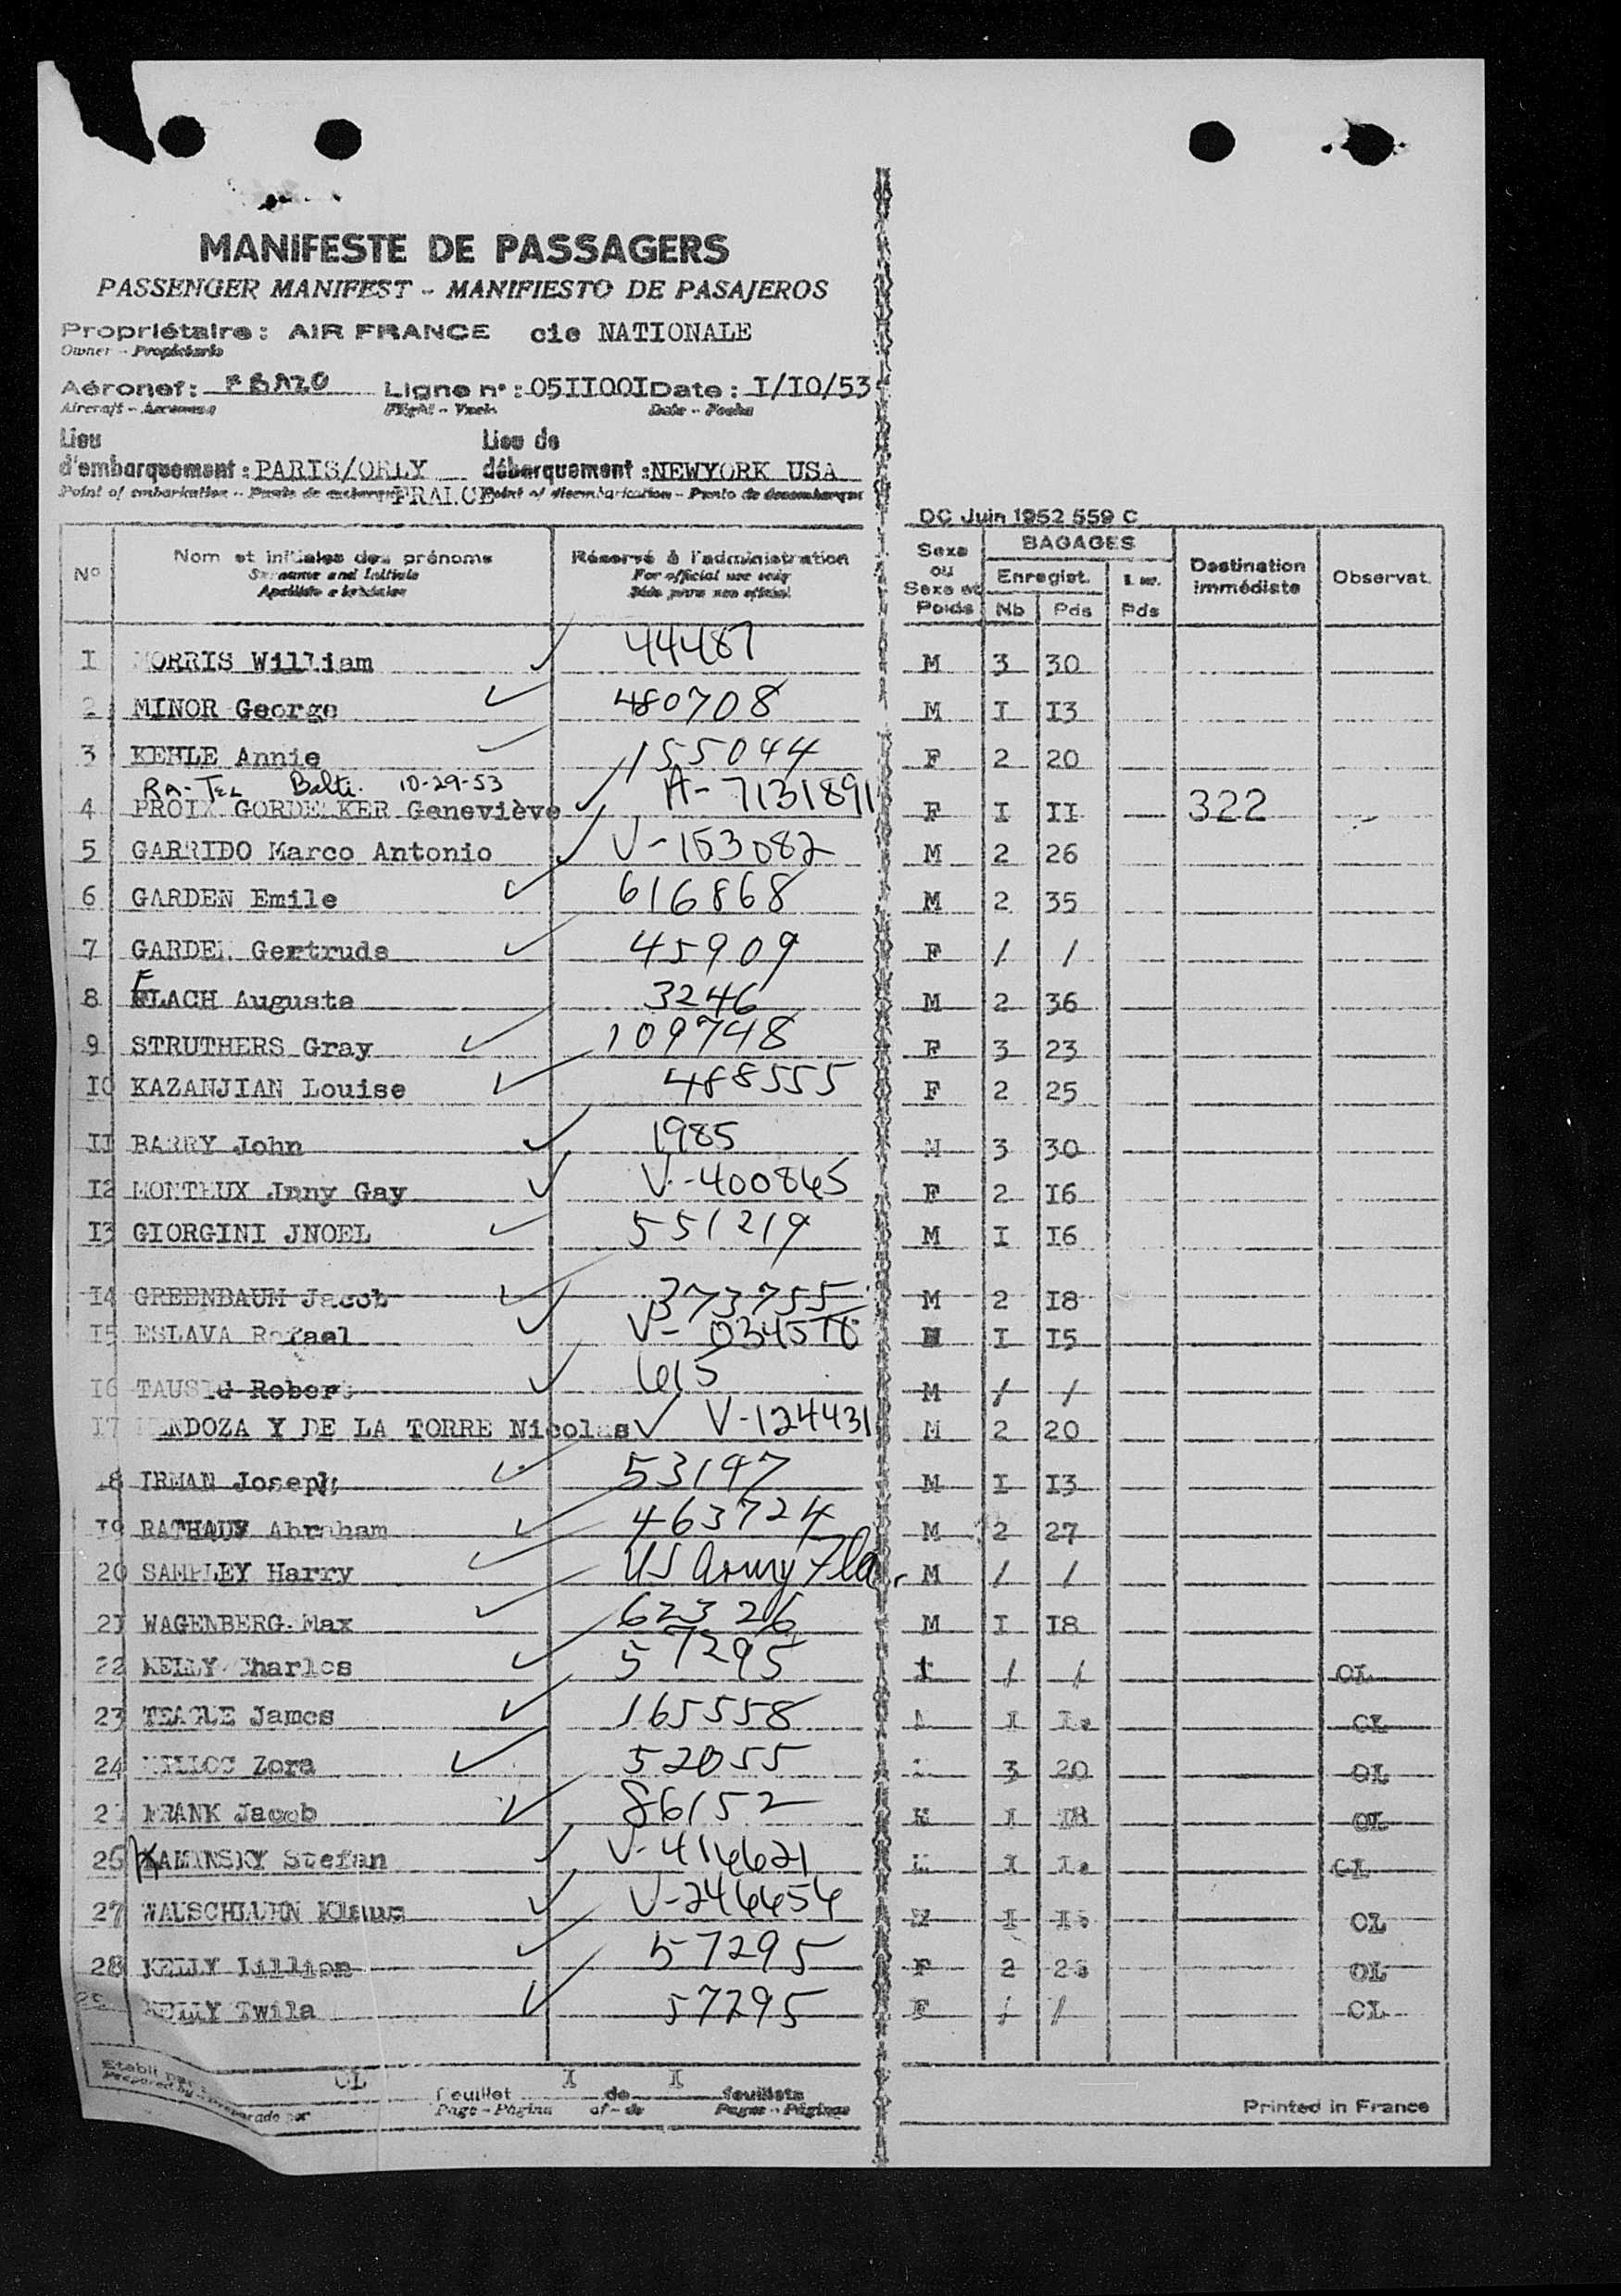 MANIFESTE DE PASSAGERS
PASSENGER MANIFEST - MANIFIESTO DE PASAJEROS
Propriétaire: AIR FRANCE cie NATIONALE
Owner - Propietario
Aéronef: Ligne n°: 05II00I Date: I/IO/53
Lieu d'embarquement: PARIS/ORLY FRANCE
Lieu de débarquement: NEWYORK USA
Point of embarkation - Punto de embarque
Point of disembarkation - Punto de desembarque
DC Juin 1952 559 C
N° Nom et initiales des prénoms Réservé à l'administration Sexe ou Sexe et Poids BAGAGES Enregist. Nb Pds Pds Destination immédiate Observat.
Surname and Initials For official use only
I MORRIS William 44487 M 3 30
2 MINOR George 480708 M I I3
3 KEHLE Annie 155044 F 2 20
RA-TEL Balti. 10-29-53
4 PROIX Geneviève A-7131891 F I II 322
5 GARRIDO Marco Antonio V-153082 M 2 26
6 GARDEN Emile 616868 M 2 35
7 GARDEN Gertrude 45909 F / /
8 FLACH Auguste 3246 M 2 36
9 STRUTHERS Gray 109748 F 3 23
IO KAZANJIAN Louise 488555 F 2 25
II BARRY John 1985 M 3 30
I2 MONTEUX Gay V-400845 F 2 I6
I3 GIORGINI JNOEL 551219 M I I6
I4 GREENBAUM Jacob 373755 M 2 I8
I5 ESLAVA Rafael M I I5
I6 TAUSIG Robert 1615 M / /
I7 MENDOZA Y DE LA TORRE Nicolas V-124431 M 2 20
I8 IRMAN Joseph 53197 M I I3
I9 Abraham 463724 M 2 27
20 SAMPLEY Harry US Army M / /
2I WAGENBERG Max 62326 M I I8
22 KELLY Charles 57295 / / OL
23 TEAGUE James 165558 I OL
24 Zora 52055 3 20 OL
FRANK Jacob 86152 M I I8 OL
26 KAMINSKY Stefan V-414621 I OL
27 Klaus V-246454 M I OL
28 KELLY Lillian 57295 F 2 OL
KELLY Twila 57295 F / / OL
Etabli par OL
Prepared by
Feuillet I de I feuillets
Page - Página of - de Pages - Páginas
Printed in France